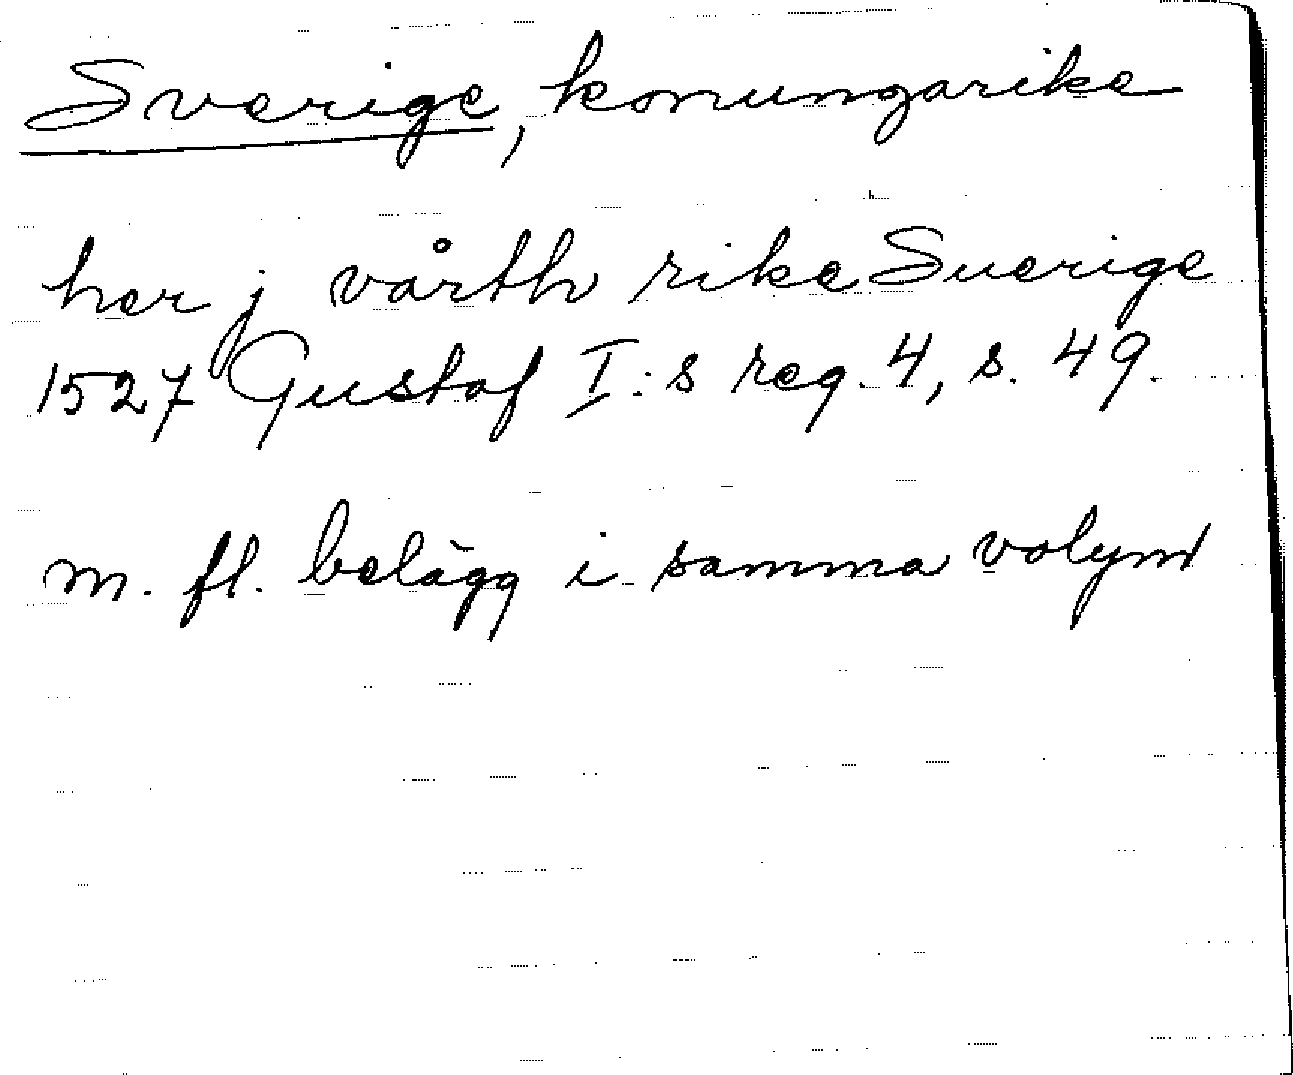 Sverige, konungarike
her j vårth rike Suerige
1527 Gustaf I:s reg. 4, s. 49.
m. fl. belägg i samma volym